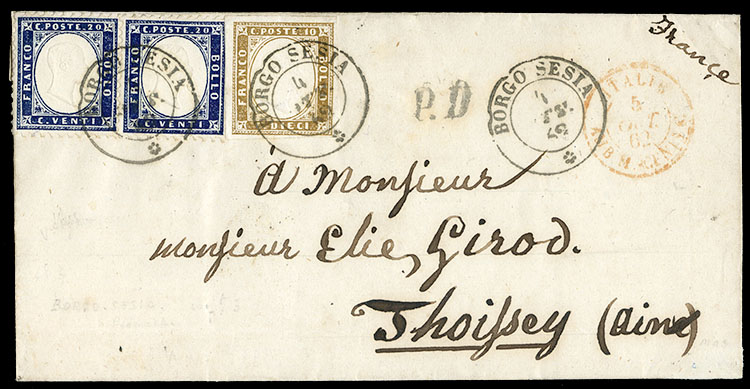 C. POSTE. 20
FRANCO
BOLLO
C. VENTI
C. POSTE. 20
FRANCO
BOLLO
C. VENTI
C. POSTE. 10
FRANCO
BOLLO
DIECI
BORGO SESIA
BORGO SESIA
4
P.D
BORGO SESIA
4
62
ITALIE
5
62
France
à Monsieur
monsieur Elie, Girod.
Thoissey (Ain)